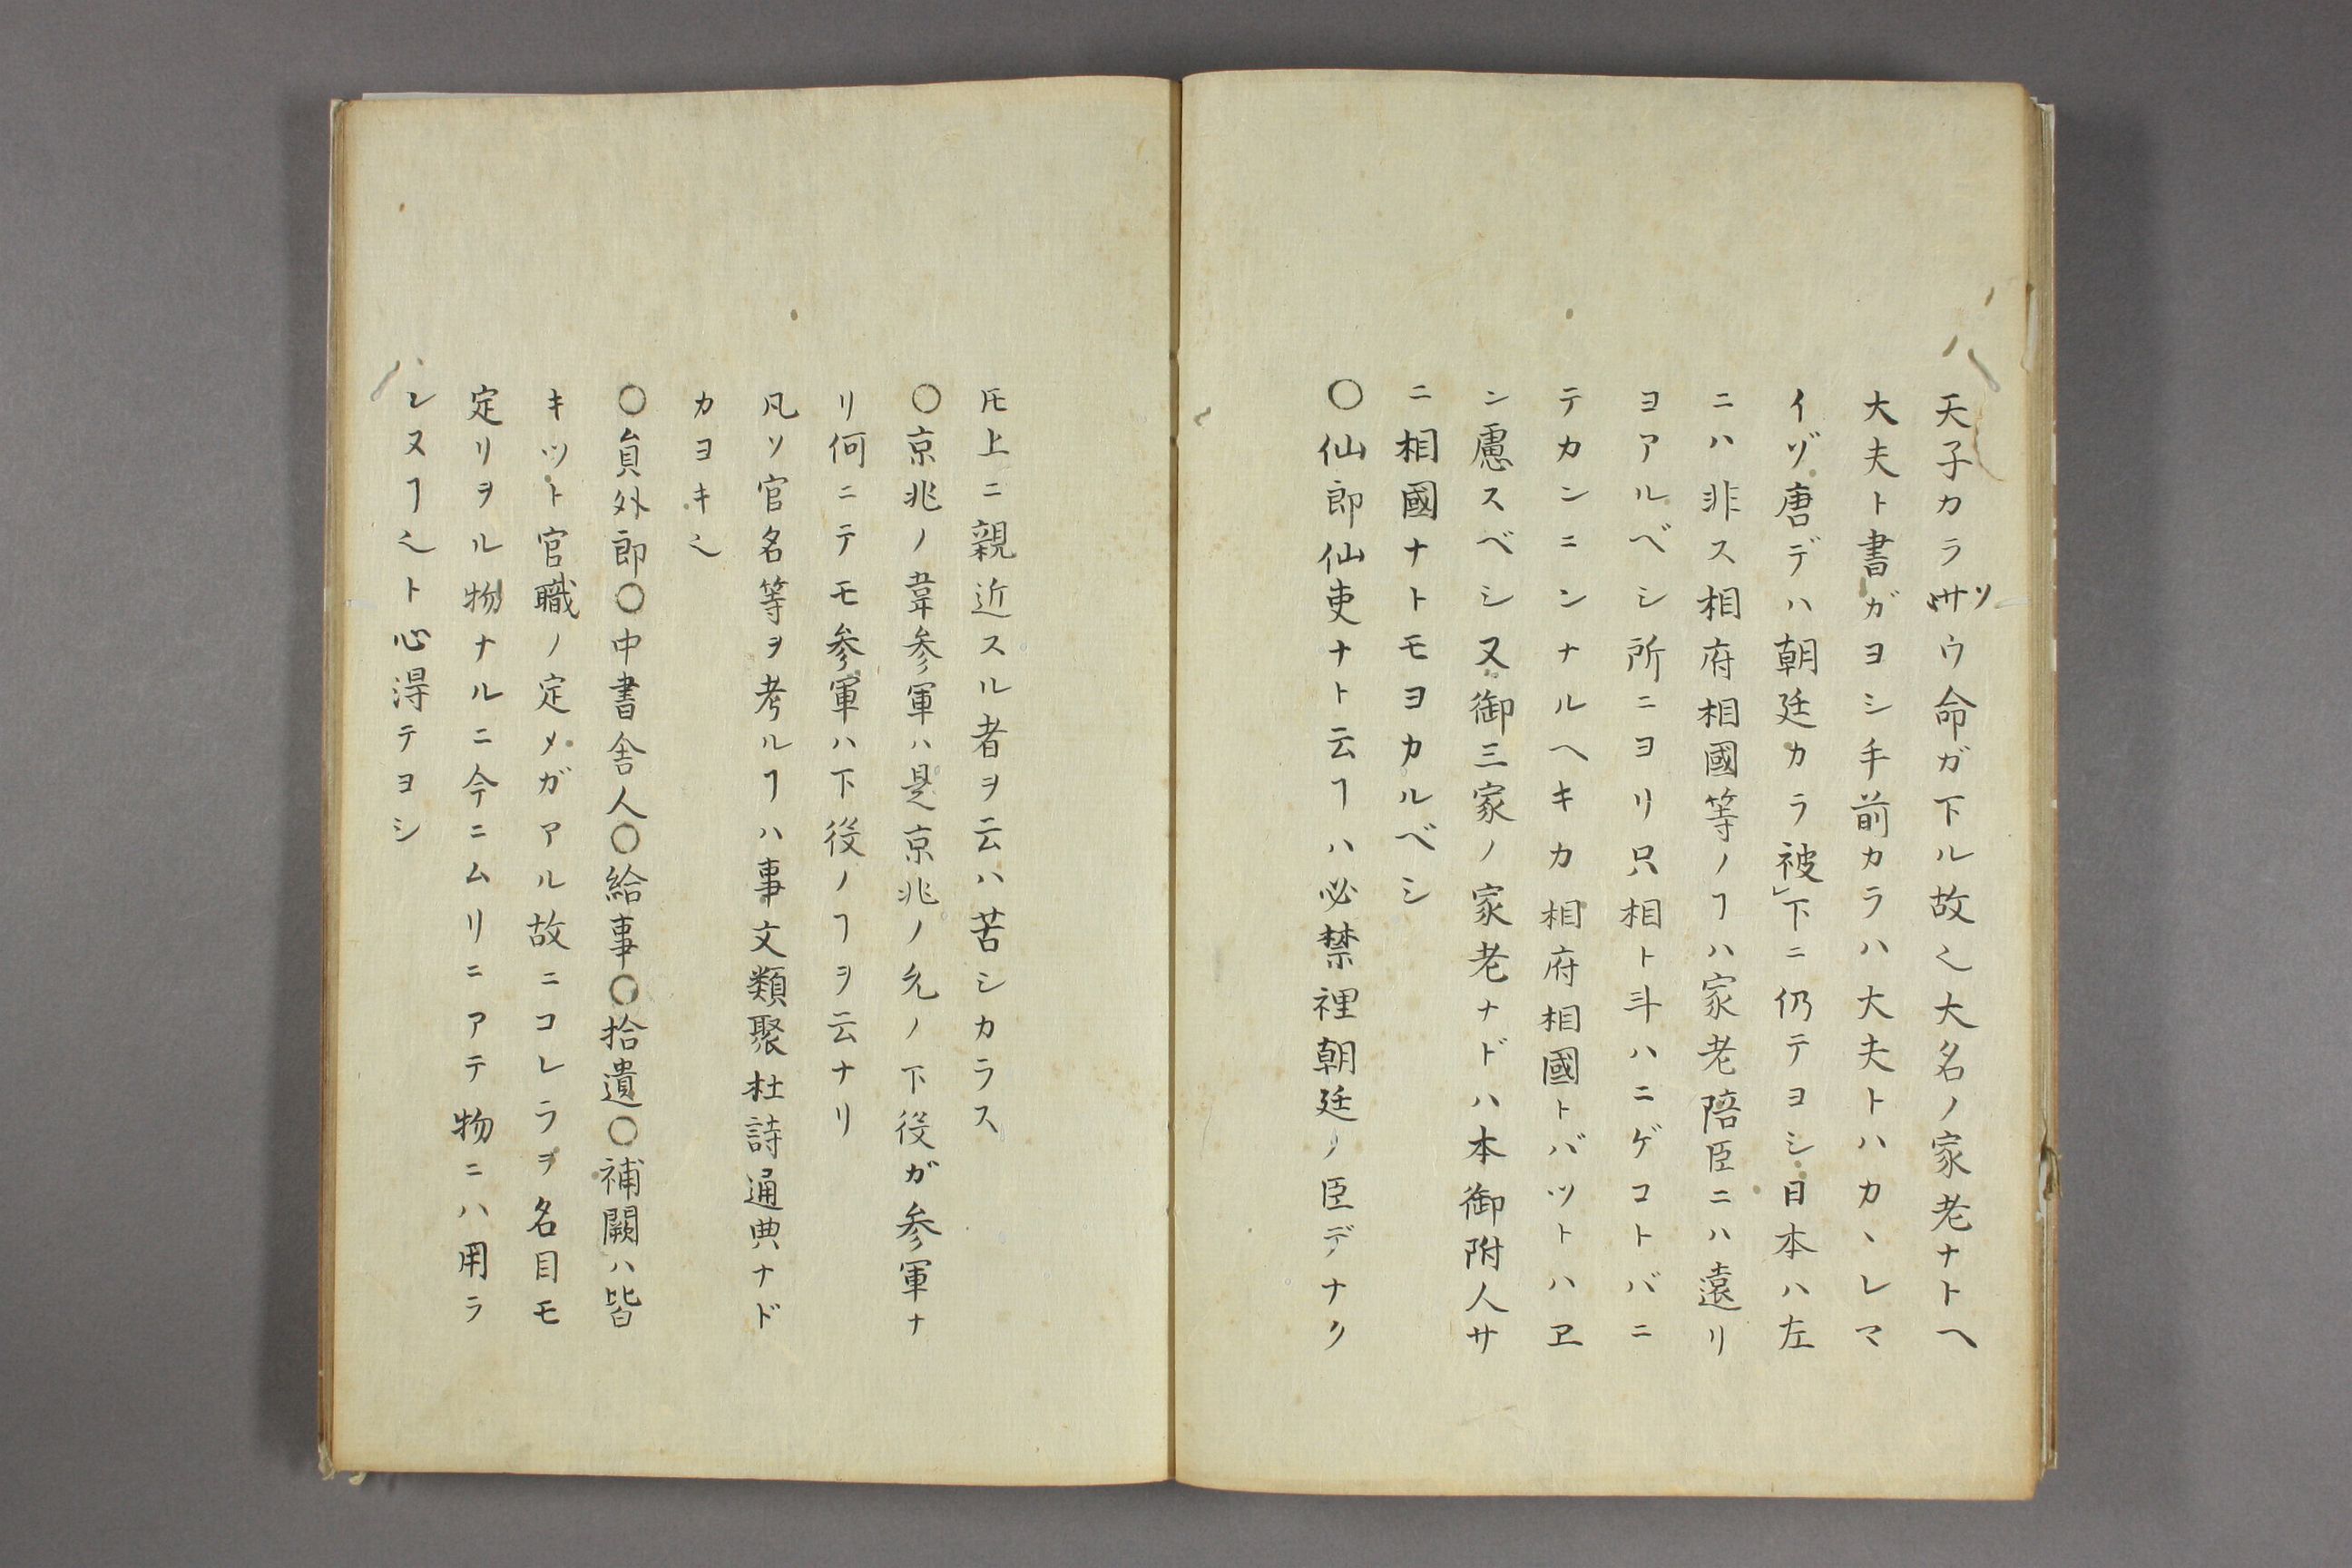 天子カラサウ命ガ下ル故〻大名ノ家老ナトヘ
大夫ト書ガヨシ手前カラハ大夫トハカヽレマ
イゾ唐デハ朝廷カラ被下ニ仍テヨシ日本ハ左
ニハ非ス相府相國等ノヿハ家老陪臣ニハ遠リ
ヨアルベシ所ニヨリ只相ト斗ハニゲコトバニ
テカンニンナルヘキカ相府相國トバツトハヱ
ン慮スベシ又御三家ノ家老ナドハ本御附人サ
ニ相國ナトモヨカルベシ
〇仙郎仙吏ナト云ヿハ必禁裡朝廷ノ臣デナク
𪜈上ニ親近スル者ヲ云ハ苦シカラス
〇京兆ノ韋参軍ハ是京兆ノ允ノ下役ガ参軍ナ
リ何ニテモ参軍ハ下役ノヿヲ云ナリ
凡ソ官名等ヲ考ルヿハ事文類聚杜詩通典ナド
カヨキ〻
〇員外郎〇中書舎人〇給事〇拾遺〇補闕ハ皆
キツト官職ノ定メガアル故ニコレラヲ名目モ
定リヲル物ナルニ今ニムリニアテ物ニハ用ラ
レヌヿ〻ト心得テヨシ